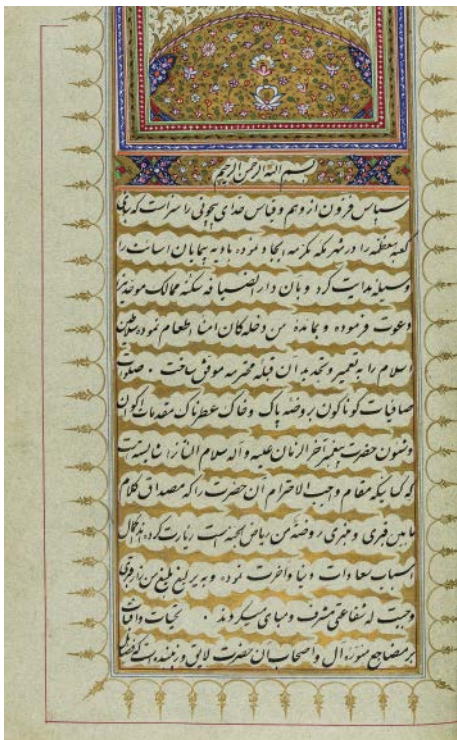 بسم الله الرحمن الرحیم
سپاس فزون از وهم و قیاس خدای بیچونی را سزاست که بنای
کعبه معظمه را در شهر مکه مکرمه ایجاد نموده بادیه پیمایان انسانیت را
وسیله هدایت کرد و بان دار الضیافه سکنه ممالک موحدین
دعوت فرموده و بمائده من دخله کان امنا اطعام نمود سلاطین
اسلام را به تعمیر و تجدید آن قبله محترمه موفق ساخت ٠ صلوات
صافیات کوناکون بر روضه پاک و خاک عطرناک مقدمات اکوان
حضرت پیغمبر آخر الزمان علیه و آله سلام شایسته است
که مقام واجب الاحترام آن حضرت را که مصداق کلام
ما بین قبری و منبری روضة من ریاض الجنه است زیارت کرده
اسباب سعادات دنیا و آخرت نموده و به یرلیغ بلیغ من زار قبری
وجبت له شفاعتی مشرف و مباهی میکردند ٠ تحیات وافیات
بر مضاجع منوره آل و اصحاب آن حضرت لایق و زیبنده است که